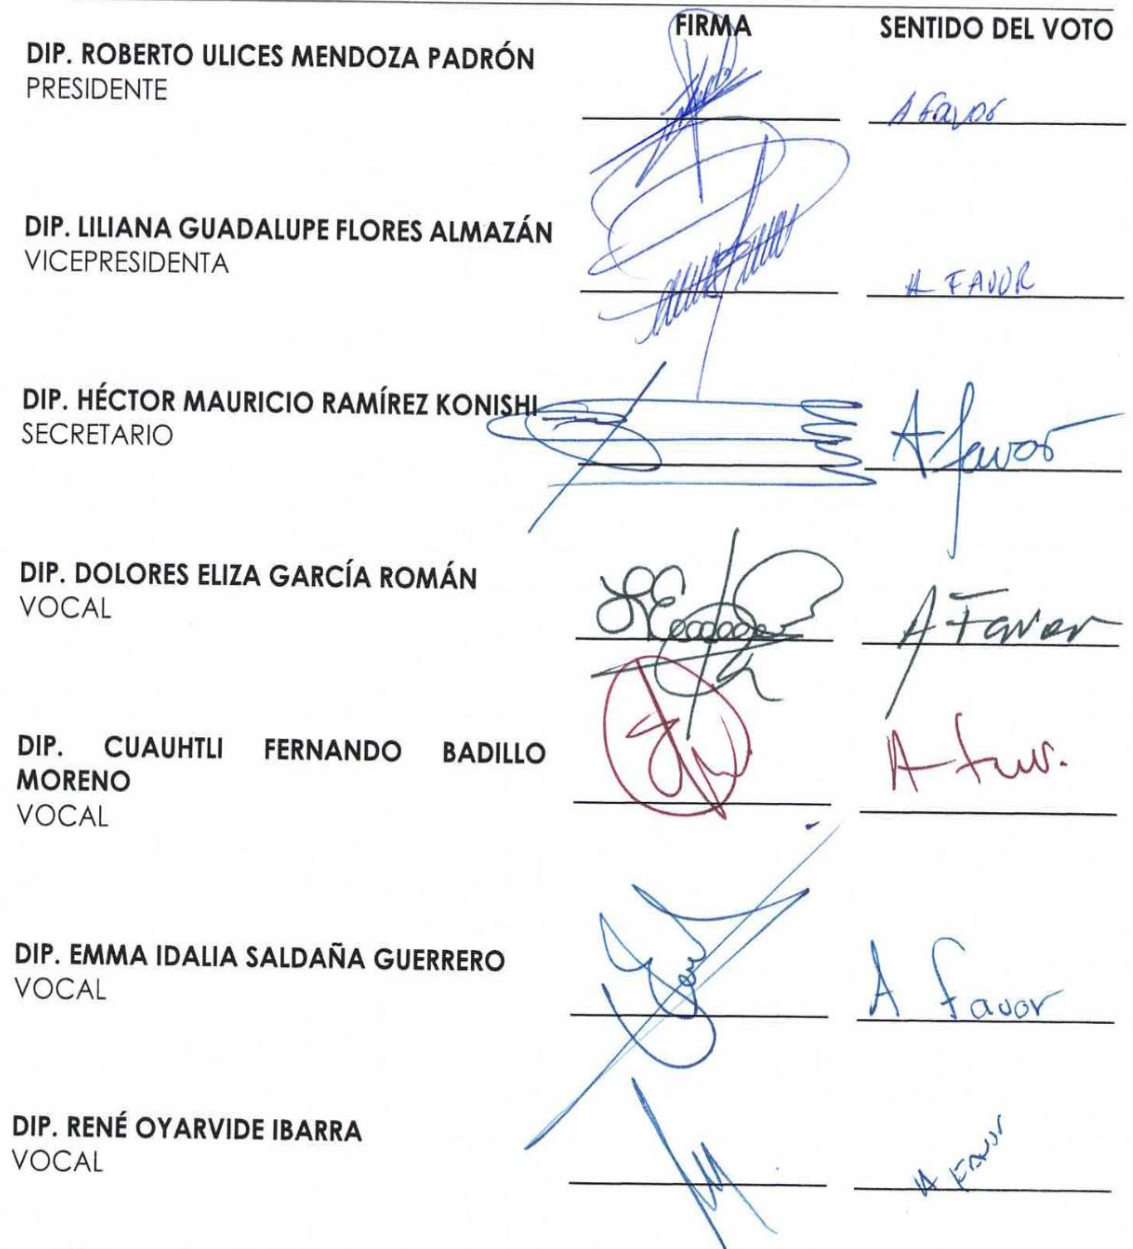 FIRMA SENTIDO DEL VOTO
DIP. ROBERTO ULICES MENDOZA PADRÓN
PRESIDENTE
A favor
DIP. LILIANA GUADALUPE FLORES ALMAZÁN
VICEPRESIDENTA
A FAVOR
DIP. HÉCTOR MAURICIO RAMÍREZ KONISHI
SECRETARIO
A favor
DIP. DOLORES ELIZA GARCÍA ROMÁN
VOCAL
A Favor
DIP. CUAUHTLI FERNANDO BADILLO
MORENO
VOCAL
A
DIP. EMMA IDALIA SALDAÑA GUERRERO
VOCAL
A favor
DIP. RENÉ OYARVIDE IBARRA
VOCAL
A FAVOR